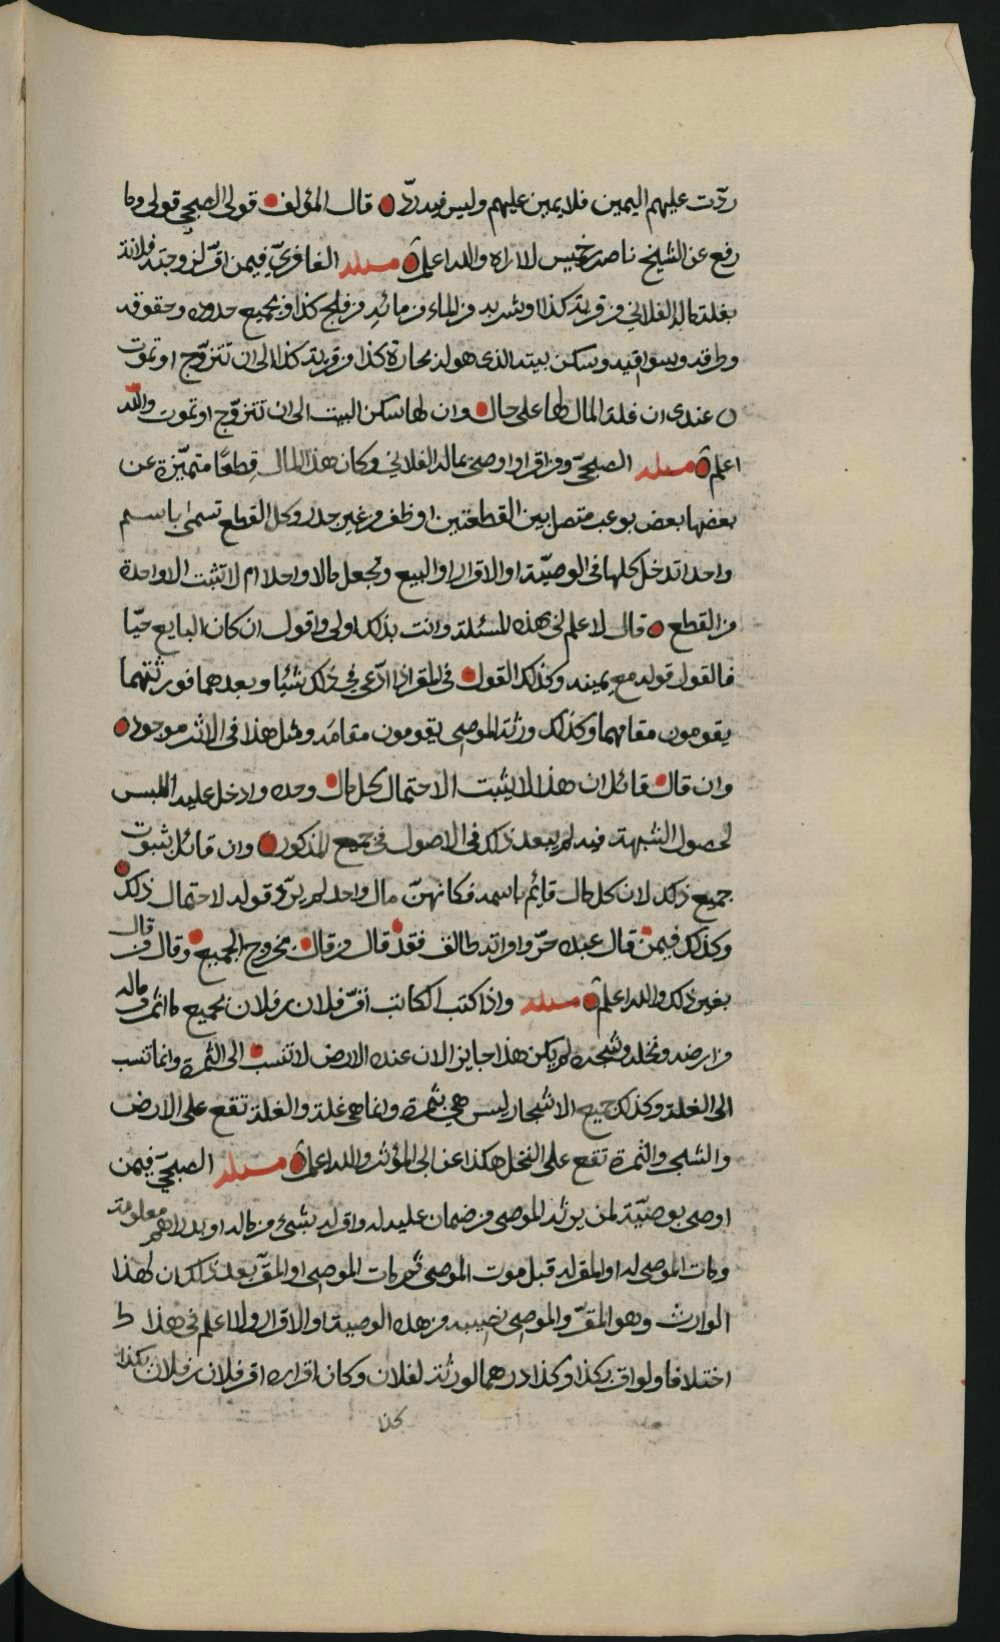 ردّت عليهم اليمين فلا يمين عليهم وليس فيه ردّ قال المؤلف قولى الصبحي قولى وما
رفع عن الشيخ ناصر بن خميس لا اراه والله اعلم مسئلة الغافريّ فيمن اقرّ لزوجته فلانة
بغلة ماله الفلاني من قرية كذا وشربه من الماء من مائه من فلج كذا وبجميع حدوده وحقوقه
وطرقه وسواقيه وسكن بيته الذي هو له بحارة كذا من قرية كذا الى ان تتزوّج او تموت
عندى ان غلة المال لها على حال وان لها سكن البيت الى ان تتزوّج او تموت والله
اعلم مسئلة الصبحيّ ومن اقر او اوصى بماله الفلاني وكان هذا المال قِطعًا متميّزة عن
بعضها بعض بوعب متصل بين القطعتين او ظفر وغير جدر وكل القطع تسمى باسم
واحد اتدخل كلها فى الوصيّة او الاقرار او البيع وتجعل مالا واحدا ام لا تثبت الا واحدة
من القطع قال لا علم لى بهذه المسئلة وانت بذلك اولى واقول ان كان البايع حيّا
فالقول قوله مع يمينه وكذلك القول فى المقر اذا ادّعى فى ذلك شيئا وبعدهما فورثتهما
يقومون مقامهما وكذلك ورثة الموصى يقومون مقامه ومثل هذا فى الاثر موجود
وان قال قائل ان هذا لا يثبت الا حتمال كل مال وحده وادخل عليه اللبس
لحصول الشبهة فيه لم يبعد ذلك فى الاصول فى جميع المذكور وان قائل بثبوت
جميع ذلك لان كل مال قائم باسمه فكانهنّ مال واحد لم يردّ قوله لاحتمال ذلك
وكذلك فيمن قال عبده حرّ وامراته طالق فقد قال من قال بخروج الجميع وقال من قال
بغير ذلك والله اعلم مسئلة واذا كتب الكاتب اقرّ فلان بن فلان بجميع ما اثمر ماله
من ارضه ونخله وشجره لم يكن هذا جايز الان عنده الارض لا تنسب الى الثمرة وانما تنسب
الى الغلة وكذلك جميع الاشجار ليس هى ثمرة وانما هى غلة والغلة تقع على الارض
والشجر والثمرة تقع على النخل هكذا عن ابى المؤثر والله اعلم مسئلة الصبحيّ فيمن
اوصى بوصيّة لمن يرثه الموصى من ضمان عليه له واقر له بشيء من ماله او بدراهم معلومة
ومات الموصى له او المقر له قبل موت الموصى ثم مات الموصى او المقرّ بعد ذلك ان لهذا
الوارث وهو المقرّ والموصى نصيبه من هذه الوصية او الاقرار ولا اعلم فى هذا
اختلافا ولو اقر بكذا وكذا درهما لورثة لفلان وكان اقراره اقر فلان بن فلان بكذا
كذا